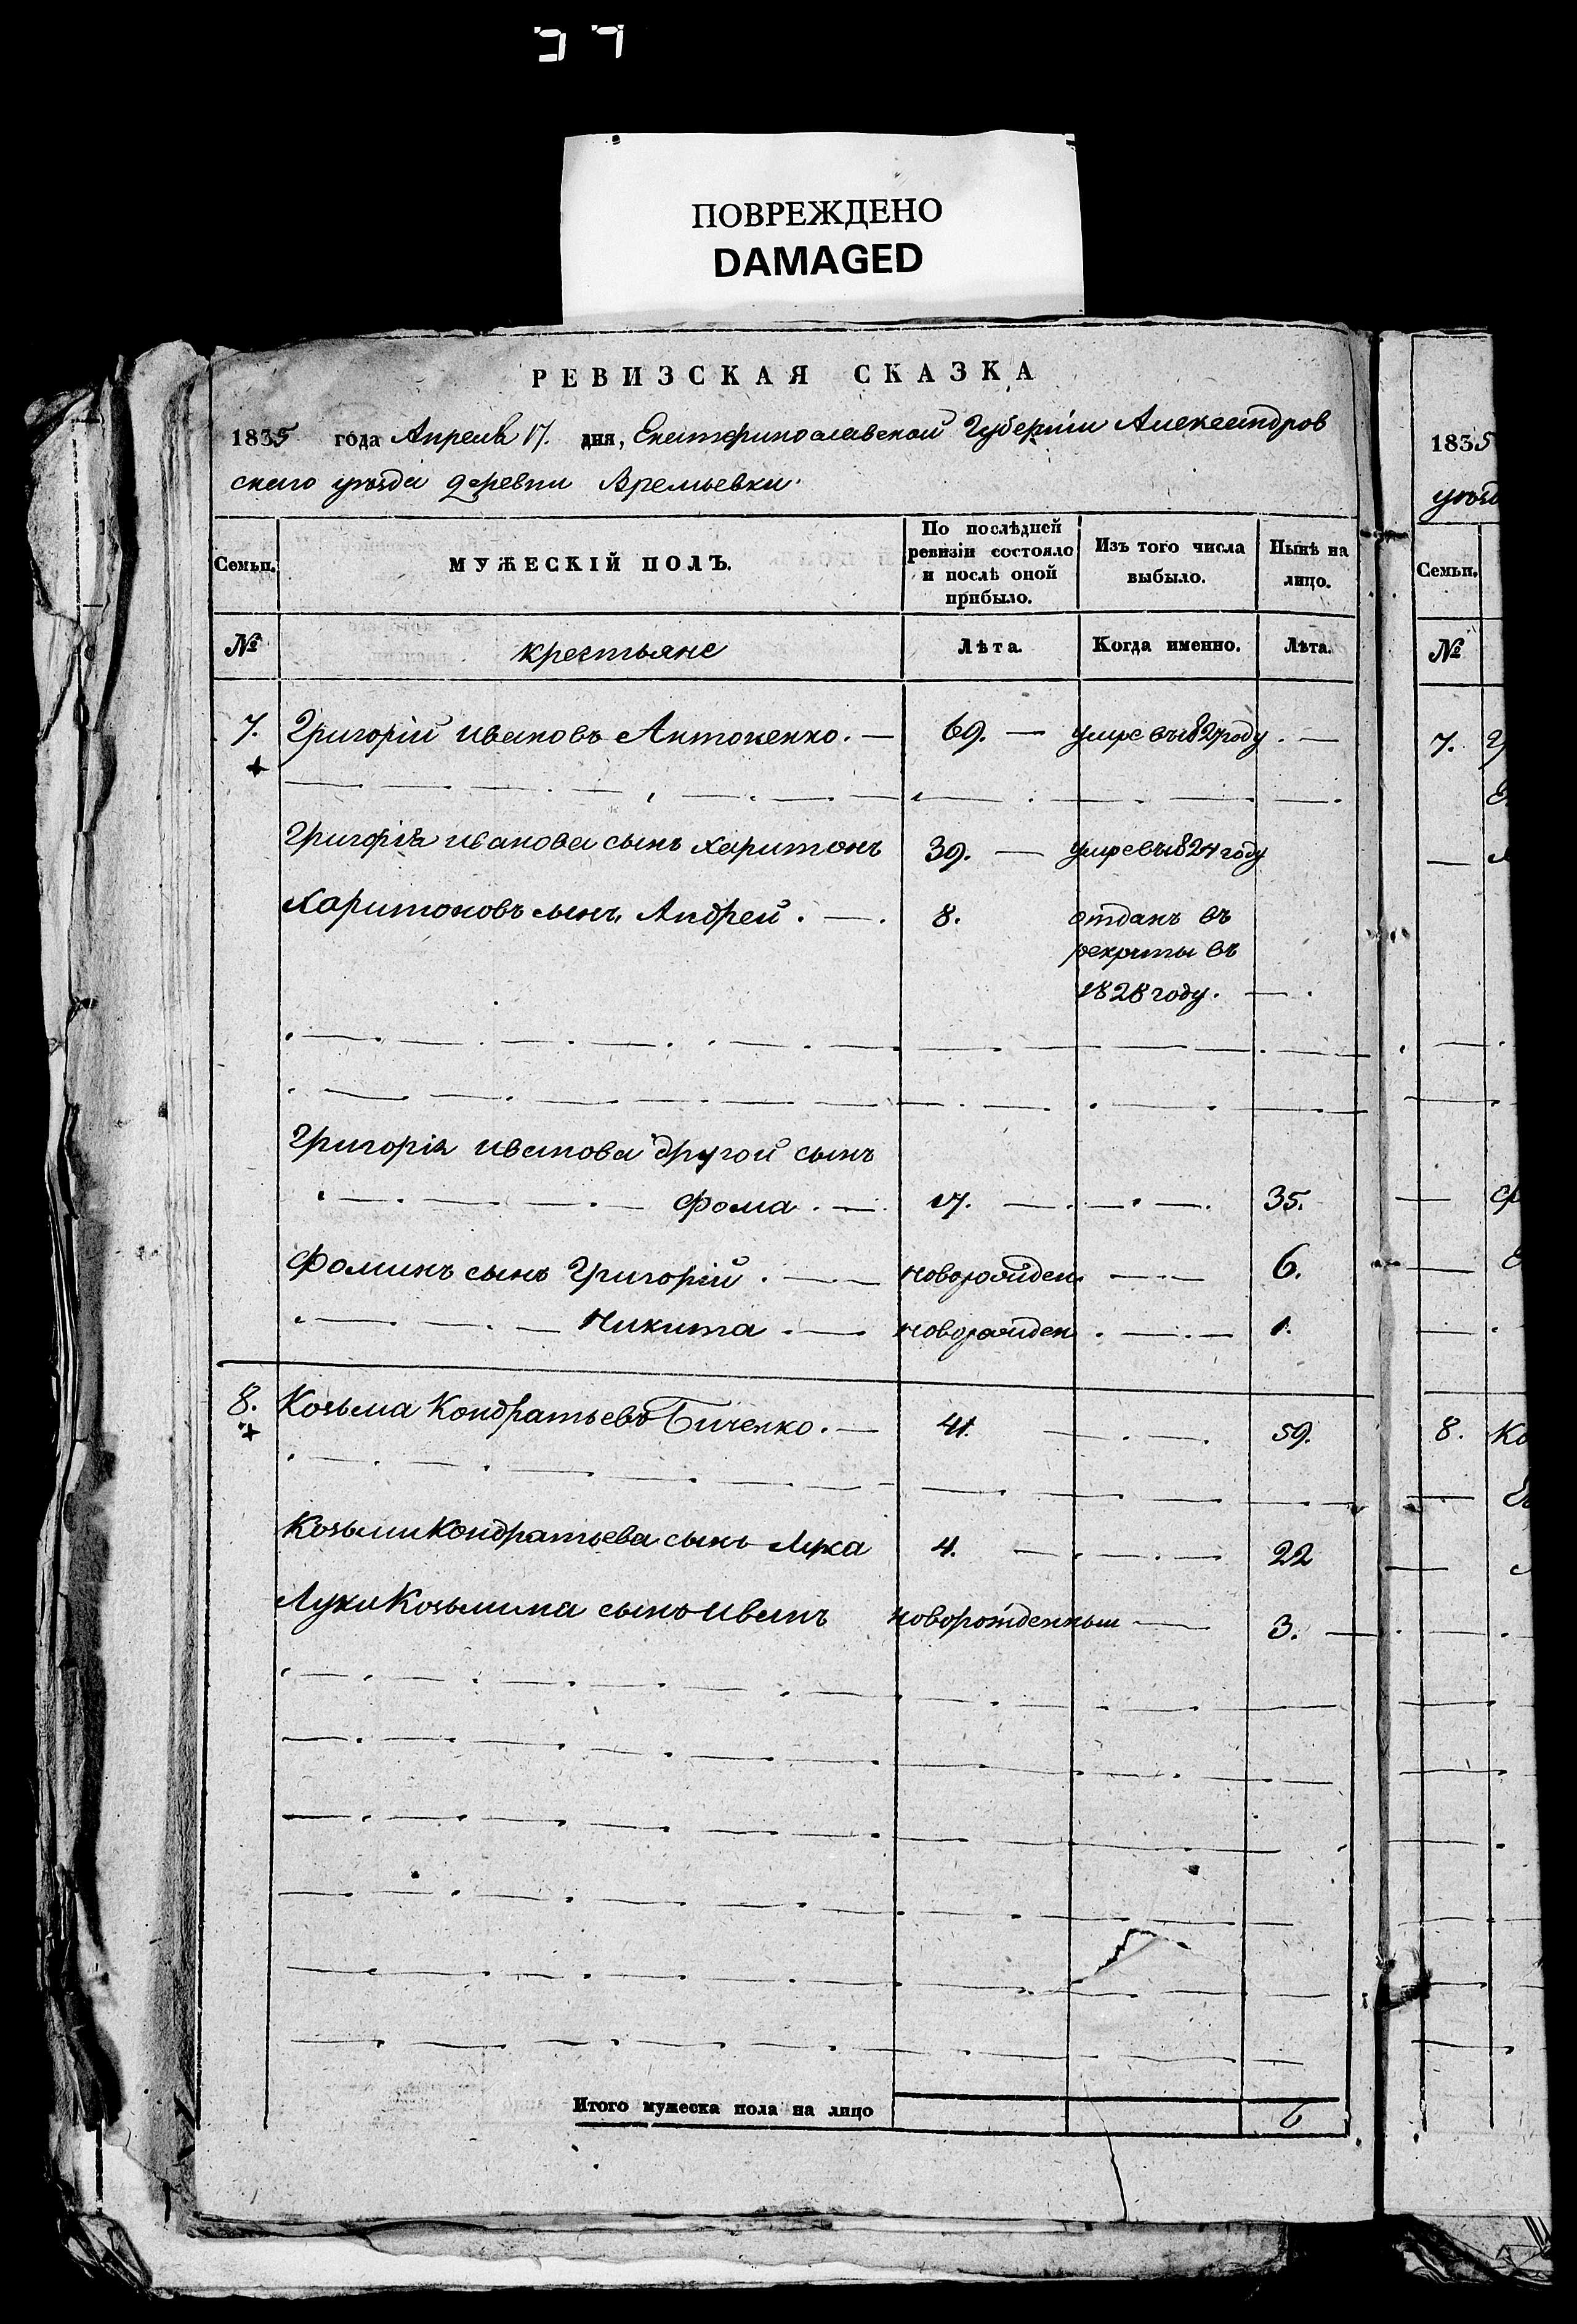 ПОВРЕЖДЕНО
DAMAGED
РЕВИЗСКАЯ СКАЗКА
1835 года Апреля 17. дня, Екатеринославской Губерніи Александров
скаго уѣзда деревни Времьевки.
Семьи. МУЖЕСКІЙ ПОЛЪ. По послѣдней ревизіи состояло и послѣ оной прибыло. Изъ того числа выбыло. Нынѣ на лицо.
№ крестьяне Лѣта. Когда именно. Лѣта.
7. Григорій Ивановъ Антоненко. — 69. — умре въ 1827 году. —
Григорія Иванова сынъ Харитонъ 39. — умре въ 1824 году
Харитоновъ сынъ Андрей. —. 8. отданъ въ
рекруты въ
1828 году. —.
Григорія Иванова другой сынъ
Фома. —. 17. — 35.
Фоминъ сынъ Григорій. — новорожден. — 6.
Никита. — новорожден. — 1.
8. Козьма Кондратьевъ Биченко. — 41. — 59.
Козьми Кондратьева сынъ Лука 4. — 22
Луки Козьмина сынъ Иванъ новорожденный — 3. —
Итого мужеска пола на лицо 6
1835
уѣзд
Семьи.
№
7.
8. Ко